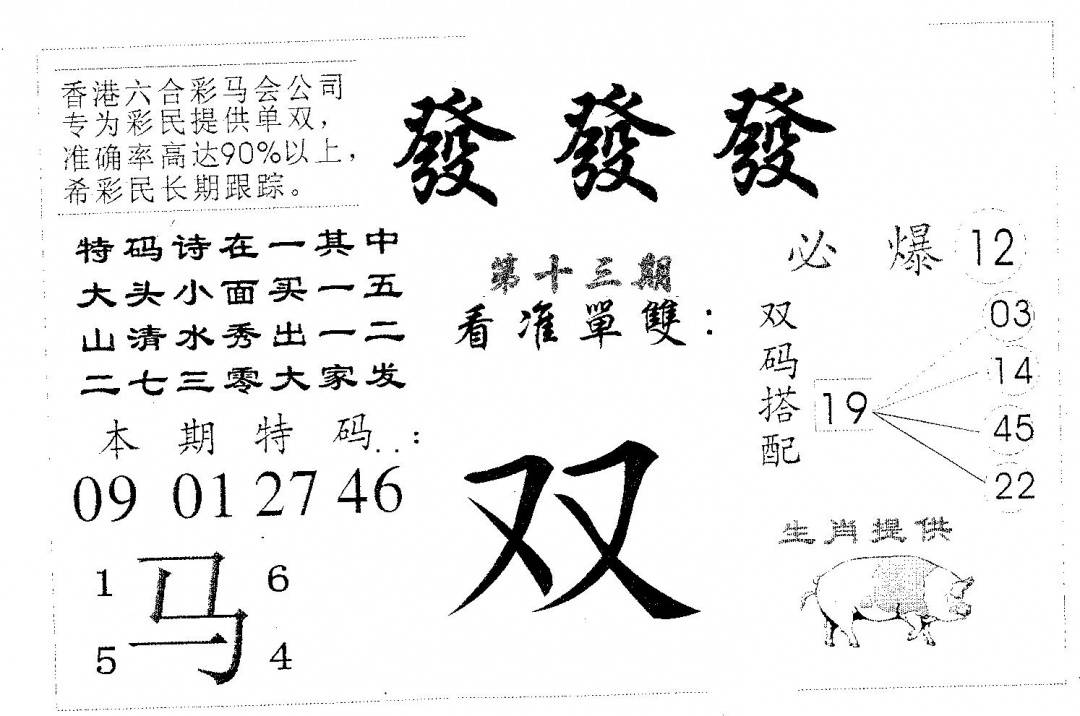 香港六合彩马会公司
专为彩民提供单双，
准确率高达90%以上，
希彩民长期跟踪。
發發發
特码诗在一其中
大头小面买一五
山清水秀出一二
二七三零大家发
第十三期
看准單雙：
必爆 12
双码搭配
19
03
14
45
22
本期特码：
09 01 27 46
双
生肖提供
1 马 6
5 4